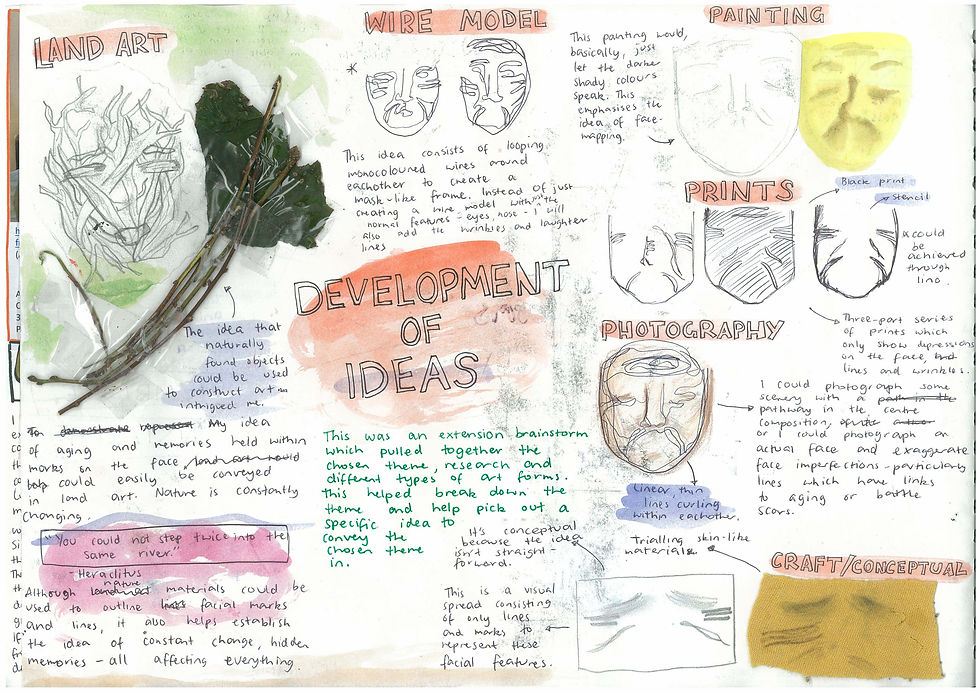 LAND ART
The idea that
naturally
found objects
could be used
to construct art
intrigued me.
To demonstrate represent My idea
of aging and memories held within
marks on the face, land art could
help could easily be conveyed
in land art. Nature is constantly
changing.
"You could not step twice into the
same river."
- Heraclitus
nature
Although materials could be
used to outline facial marks
and lines, it also helps establish
the idea of constant change, hidden
memories - all affecting everything.
WIRE MODEL
*
This idea consists of looping
monocoloured wires around
eachother to create a
mask-like frame. Instead of just
creating a wire model with just the
normal features - eyes, nose - I will
also add the wrinkles and laughter
lines
DEVELOPMENT
OF
IDEAS
This was an extension brainstorm
which pulled together the
chosen theme, research and
different types of art forms.
This helped break down the
theme and help pick out a
specific idea to
convey the
chosen theme
in.
PAINTING
This painting would,
basically, just
let the darker
shady colours
speak. This
emphasises the
idea of face-
mapping.
PRINTS
Black print
stencil
could
be
achieved
through
lino.
Three-part series
of prints which
only show depressions
on the face, and
lines and wrinkles.
PHOTOGRAPHY
I could photograph some
scenery with a path in the
pathway in the centre
composition,
or I could photograph an
actual face and exaggurate
face imperfections - particularly
lines which have links
to aging or battle
scars.
Linear, thin
lines curling
within eachother.
Trialling skin-like
materials.
CRAFT/CONCEPTUAL
It's conceptual
because the idea
isn't straight-
forward.
This is a visual
spread consisting
of only lines
and marks to
represent these
facial features.